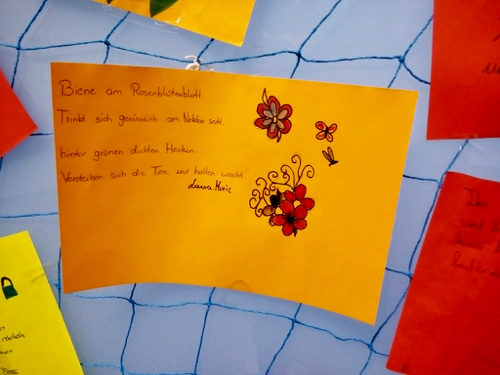 Biene am Rosenblütenblatt
Trinkt sich genüsslich am Nektar satt
hinter grünen dichten Hecken
Verstecken sich die Tiere und halten wacht
Laura-Marie